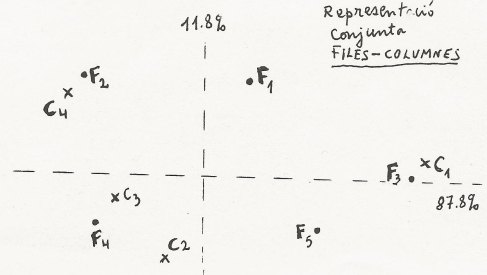 Representació
conjunta
FILES-COLUMNES
11.8%
F2
C4
F1
F3
C1
87.8%
C3
F4
C2
F5